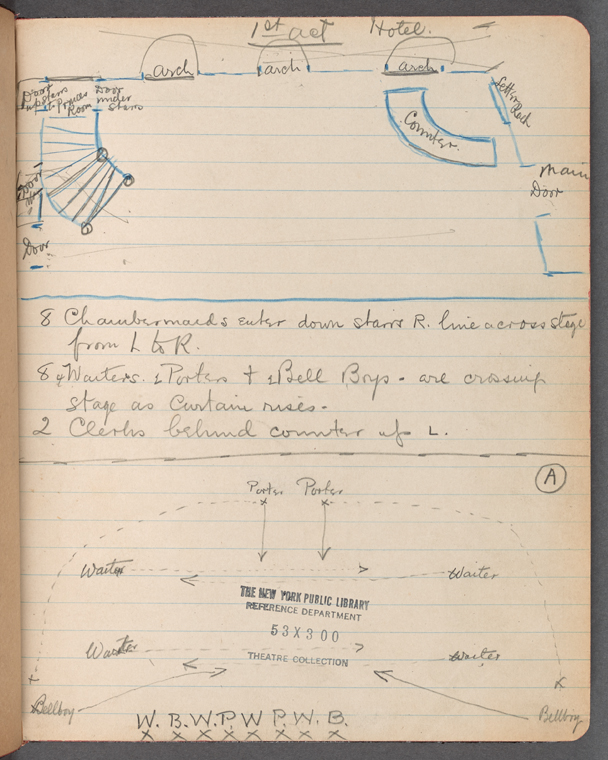 1st act Hotel.
arch
arch
arch
Door
upstairs
to Princess
Room
Door
under
stairs
Letter Rack
Counter.
Main
Door
Door
Door
8 Chambermaids enter down stairs R. line across stage
from L to R.
8 Waiters. 2 Porters + 2 Bell Boys - are crossing
stage as Curtain rises -
2 Clerks behind counter up L.
A
Porter Porter
Waiter Waiter
THE NEW YORK PUBLIC LIBRARY
REFERENCE DEPARTMENT
53X300
THEATRE COLLECTION
Waiter Waiter
Bellboy Bellboy
W. B. W. P. W P. W. B.
x x x x x x x x